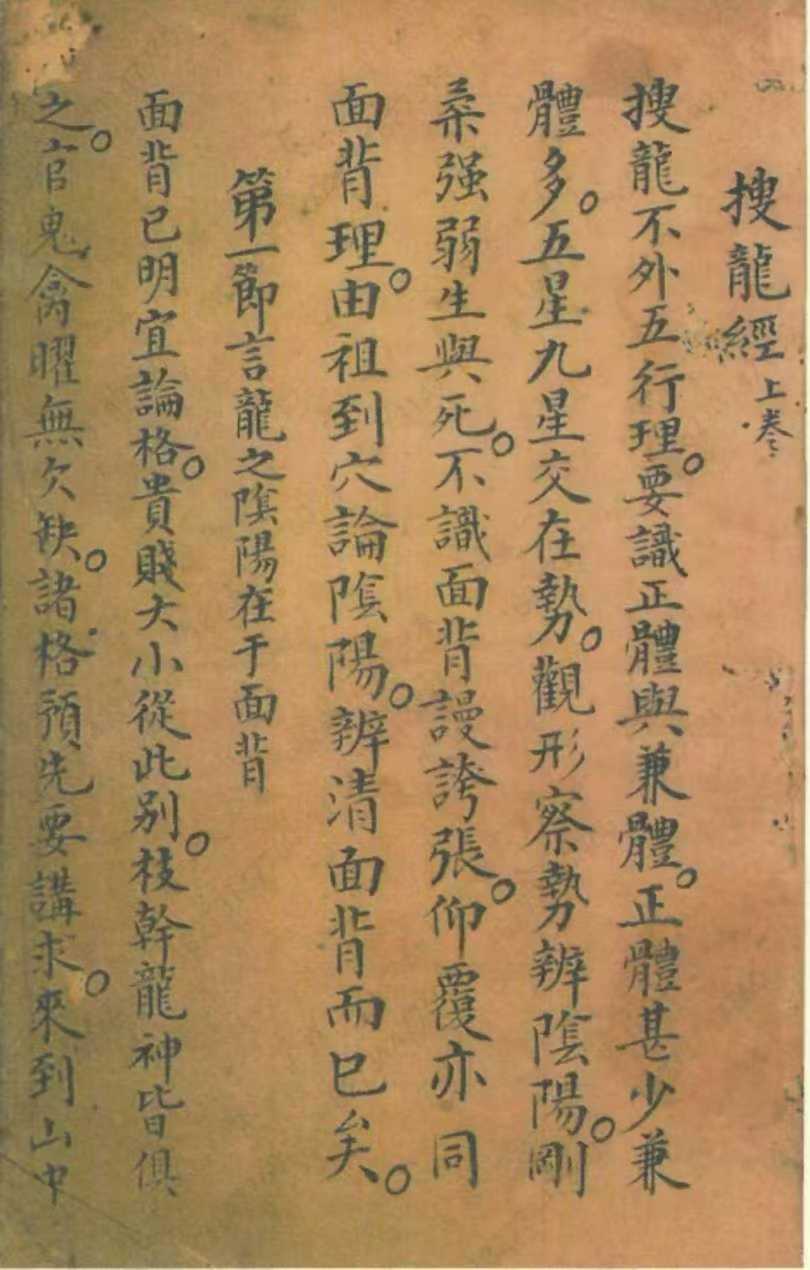 搜龍經 上卷
搜龍不外五行理。要識正體與兼體。正體甚少兼
體多。五星九星交在勢。觀形察勢辨陰陽。剛
柔强弱生與死。不識面背謾誇張。仰覆亦同
面背理。由祖到穴論陰陽。辨清面背而已矣。
第一節言龍之陰陽在于面背
面背已明宜論格。貴賤大小從此别。枝幹龍神皆俱
之。官鬼禽曜無欠缺。諸格預先要講求。來到山中